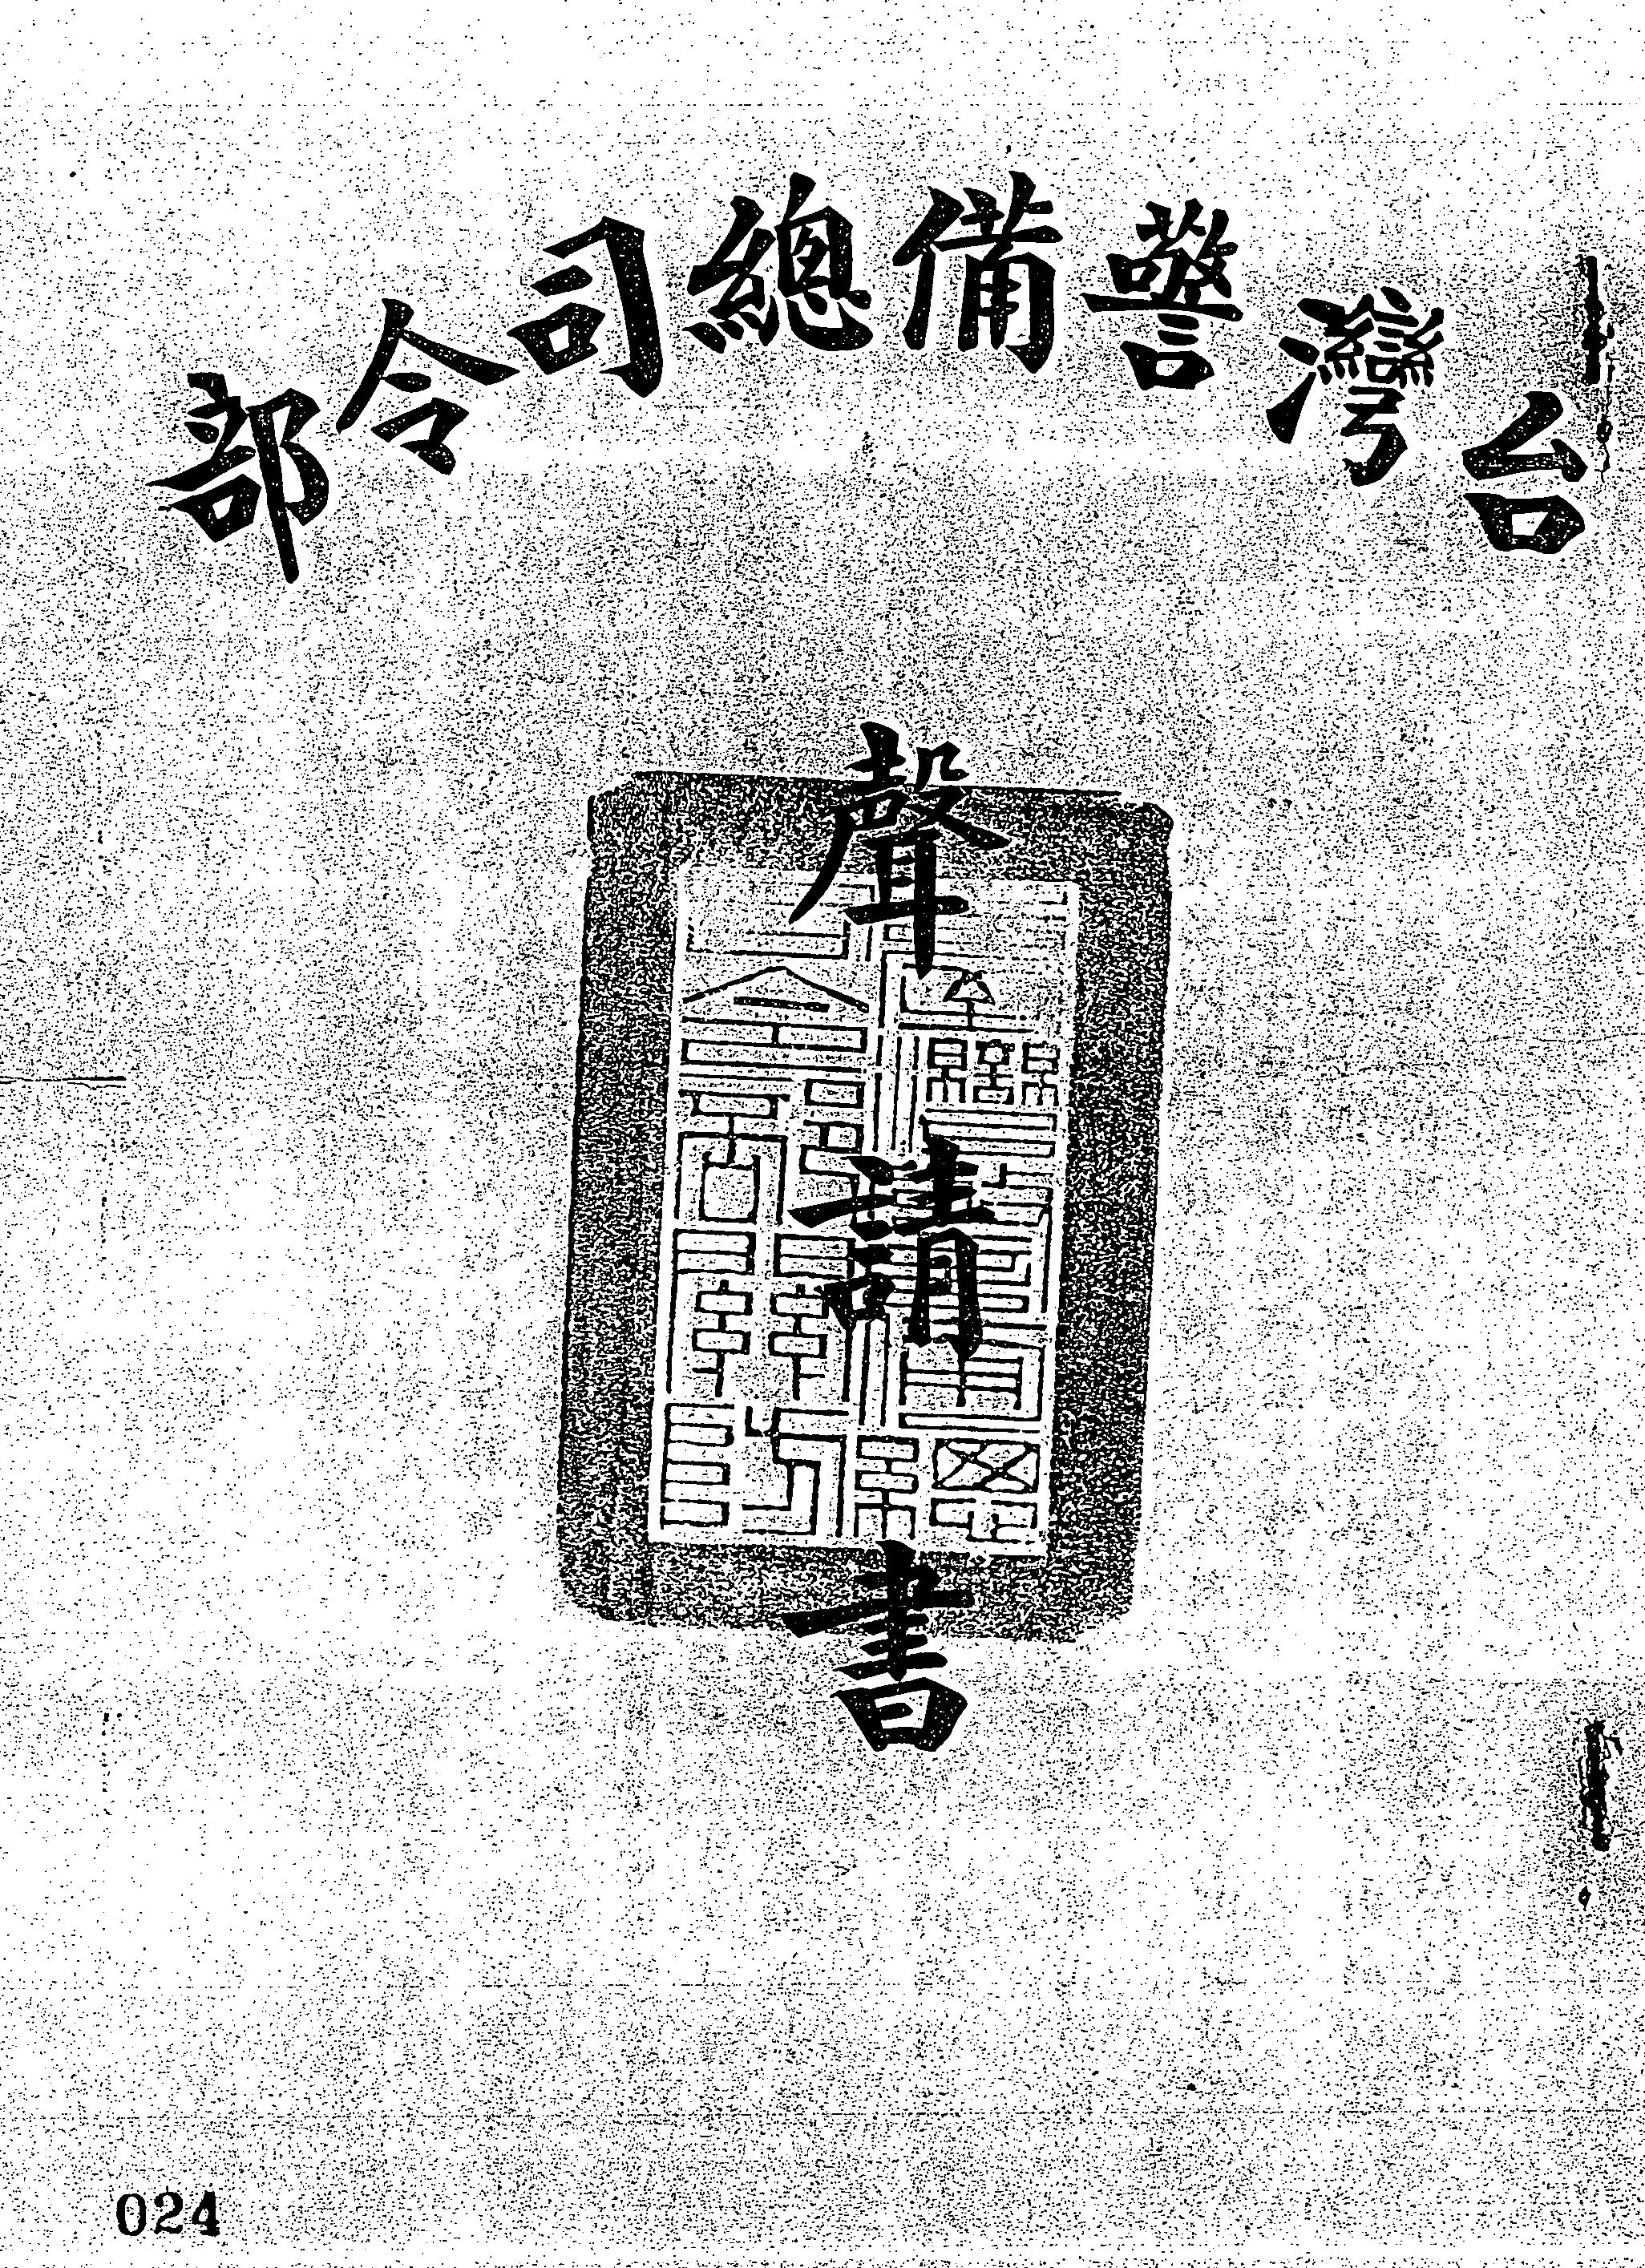 台灣警備總司令部
聲請書
024